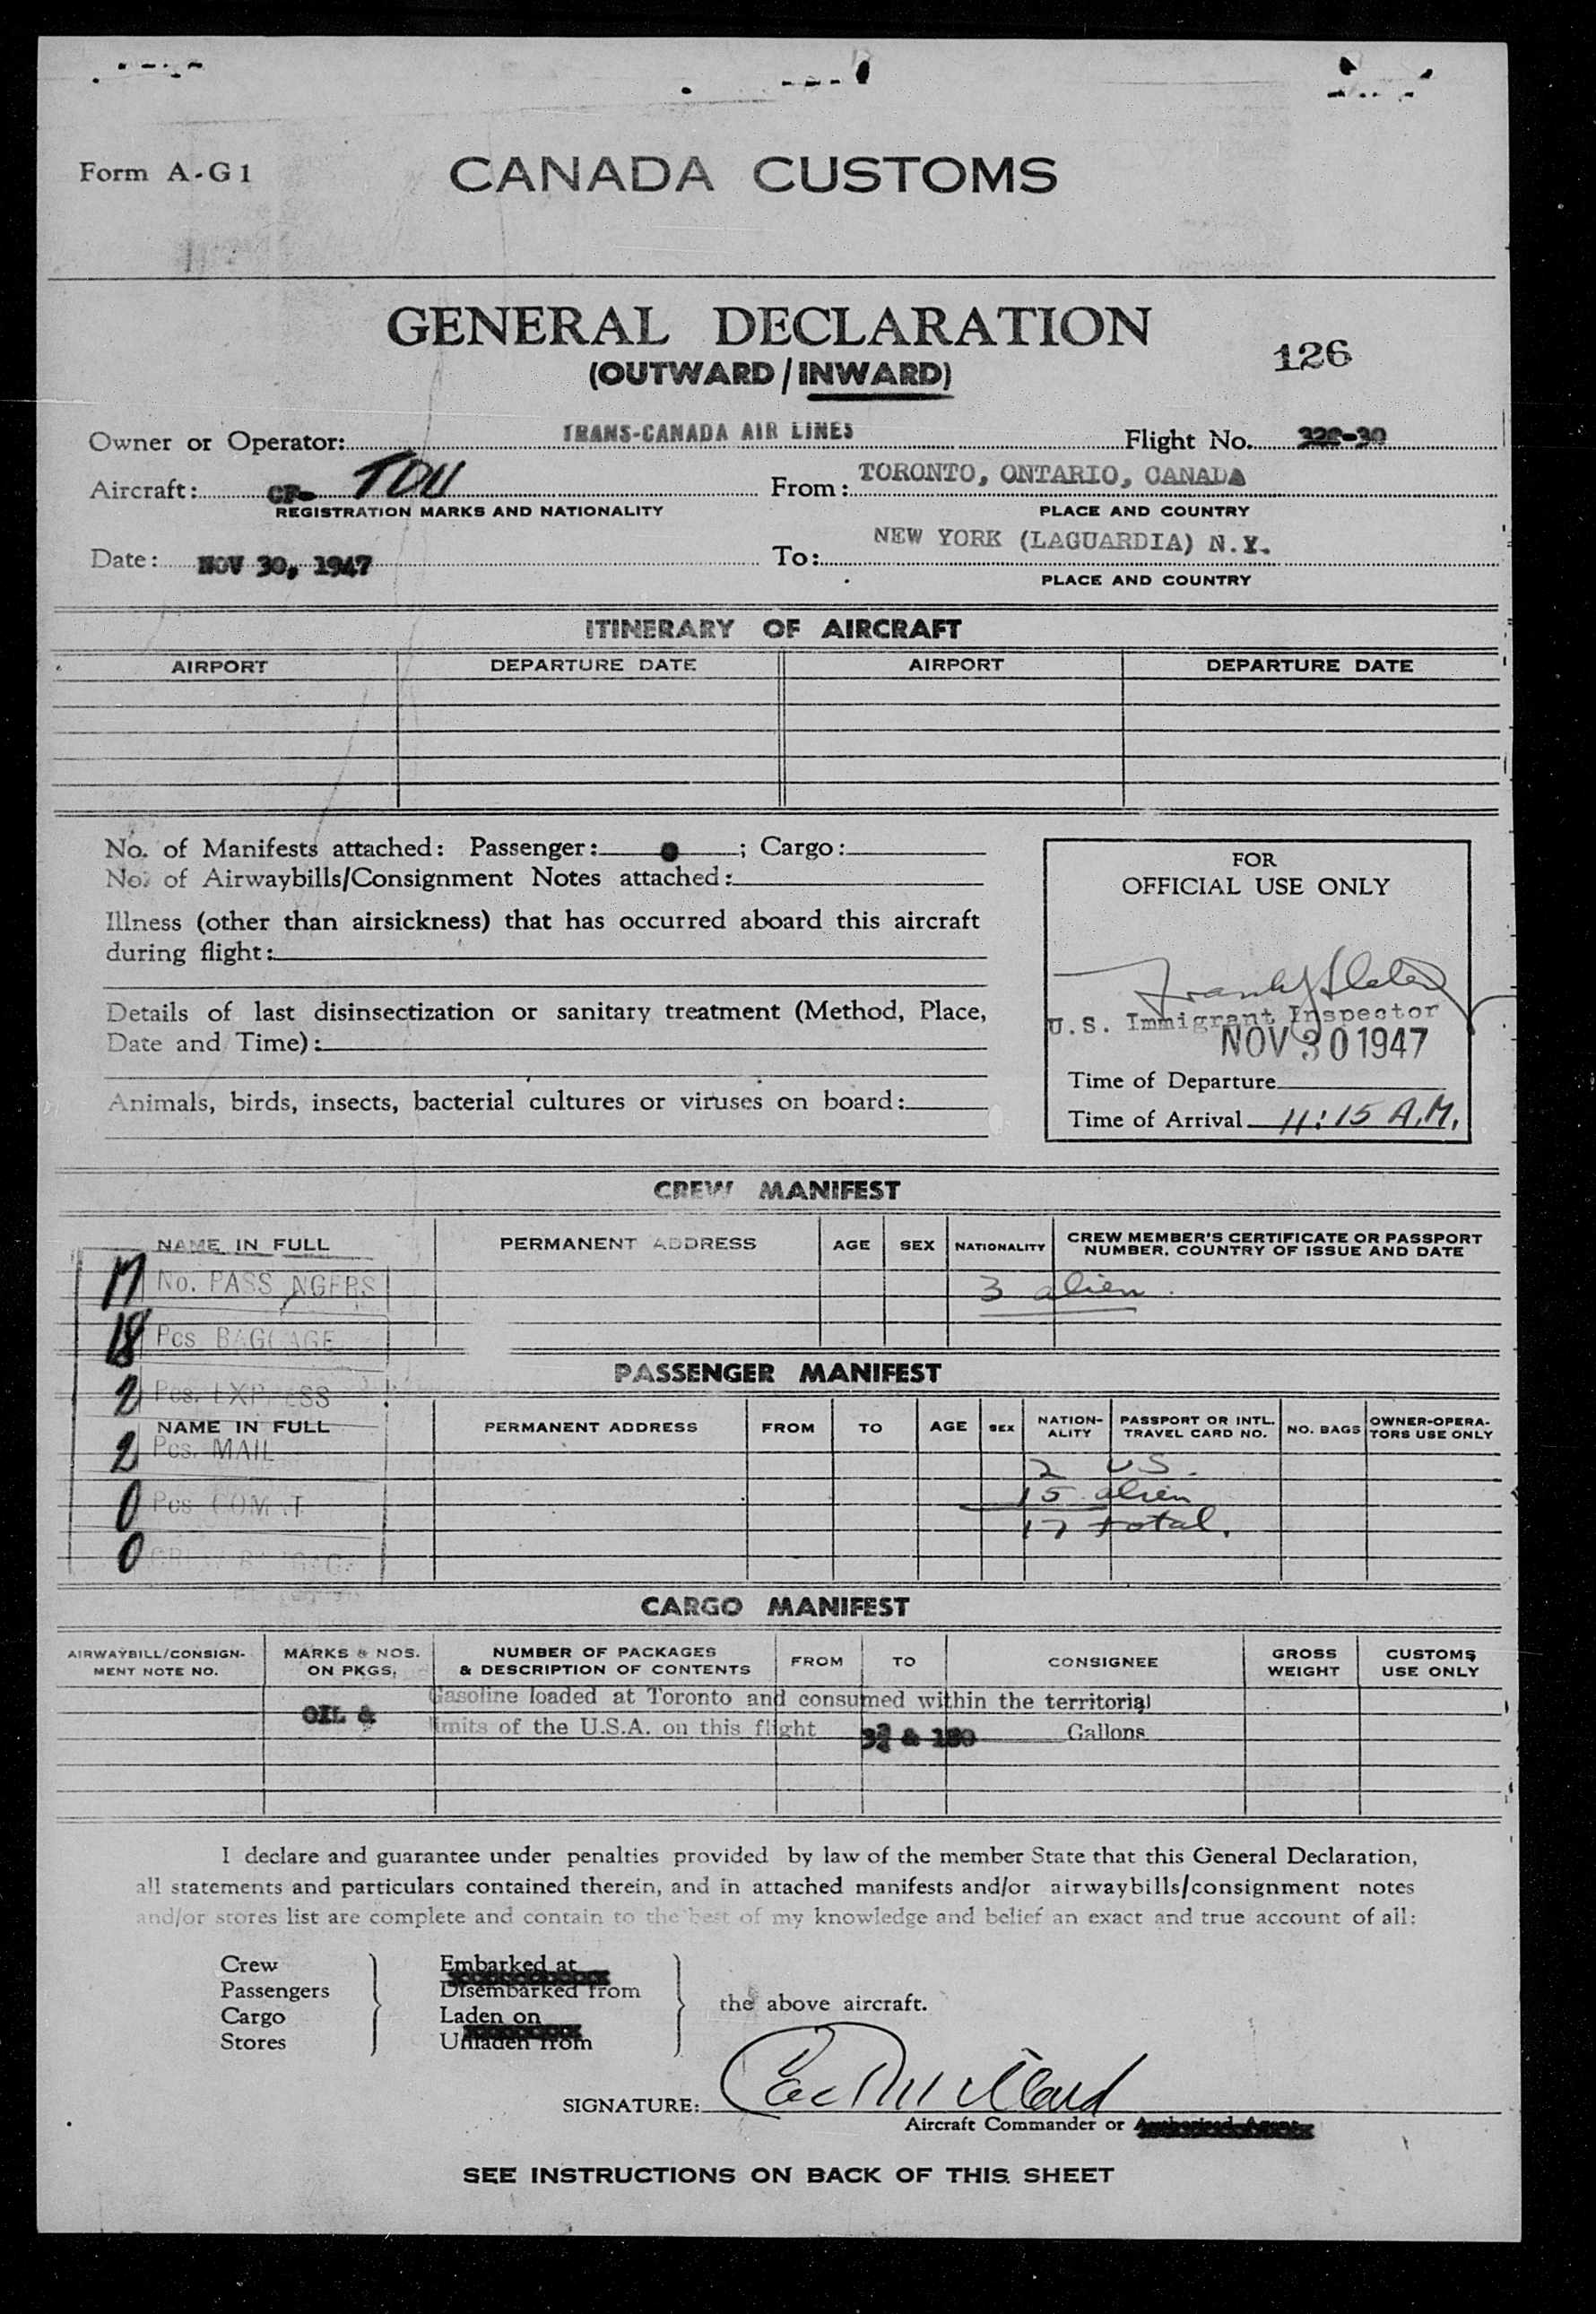 Form A-G1
CANADA CUSTOMS
GENERAL DECLARATION
(OUTWARD/INWARD)
126
Owner or Operator: TRANS-CANADA AIR LINES Flight No.
Aircraft: CF- TDU From: TORONTO, ONTARIO, CANADA
REGISTRATION MARKS AND NATIONALITY PLACE AND COUNTRY
Date: NOV 30, 1947 To: NEW YORK (LAGUARDIA) N.Y.
PLACE AND COUNTRY
ITINERARY OF AIRCRAFT
AIRPORT DEPARTURE DATE AIRPORT DEPARTURE DATE
No. of Manifests attached: Passenger: ; Cargo:
No. of Airwaybills/Consignment Notes attached:
Illness (other than airsickness) that has occurred aboard this aircraft
during flight:
Details of last disinsectization or sanitary treatment (Method, Place,
Date and Time):
Animals, birds, insects, bacterial cultures or viruses on board:
FOR
OFFICIAL USE ONLY
U.S. Immigrant Inspector
NOV 30 1947
Time of Departure
Time of Arrival 11:15 A.M.
CREW MANIFEST
NAME IN FULL PERMANENT ADDRESS AGE SEX NATIONALITY CREW MEMBER'S CERTIFICATE OR PASSPORT
NUMBER, COUNTRY OF ISSUE AND DATE
17 No. PASSENGERS
3 alien
18 Pcs BAGGAGE
PASSENGER MANIFEST
2 Pcs. EXPRESS
NAME IN FULL PERMANENT ADDRESS FROM TO AGE SEX NATION-
ALITY PASSPORT OR INTL.
TRAVEL CARD NO. NO. BAGS OWNER-OPERA-
TORS USE ONLY
2 Pcs. MAIL
2 US.
15 alien
0 Pcs COMAT
17 total.
0 CREW BAGGAGE
CARGO MANIFEST
AIRWAYBILL/CONSIGN-
MENT NOTE NO. MARKS & NOS.
ON PKGS. NUMBER OF PACKAGES
& DESCRIPTION OF CONTENTS FROM TO CONSIGNEE GROSS
WEIGHT CUSTOMS
USE ONLY
OIL & Gasoline loaded at Toronto and consumed within the territorial
limits of the U.S.A. on this flight Gallons
I declare and guarantee under penalties provided by law of the member State that this General Declaration,
all statements and particulars contained therein, and in attached manifests and/or airwaybills/consignment notes
and/or stores list are complete and contain to the best of my knowledge and belief an exact and true account of all:
Crew Embarked at
Passengers Disembarked from
the above aircraft.
Cargo Laden on
Stores Unladen from
SIGNATURE:
Aircraft Commander or Authorized Agent
SEE INSTRUCTIONS ON BACK OF THIS SHEET